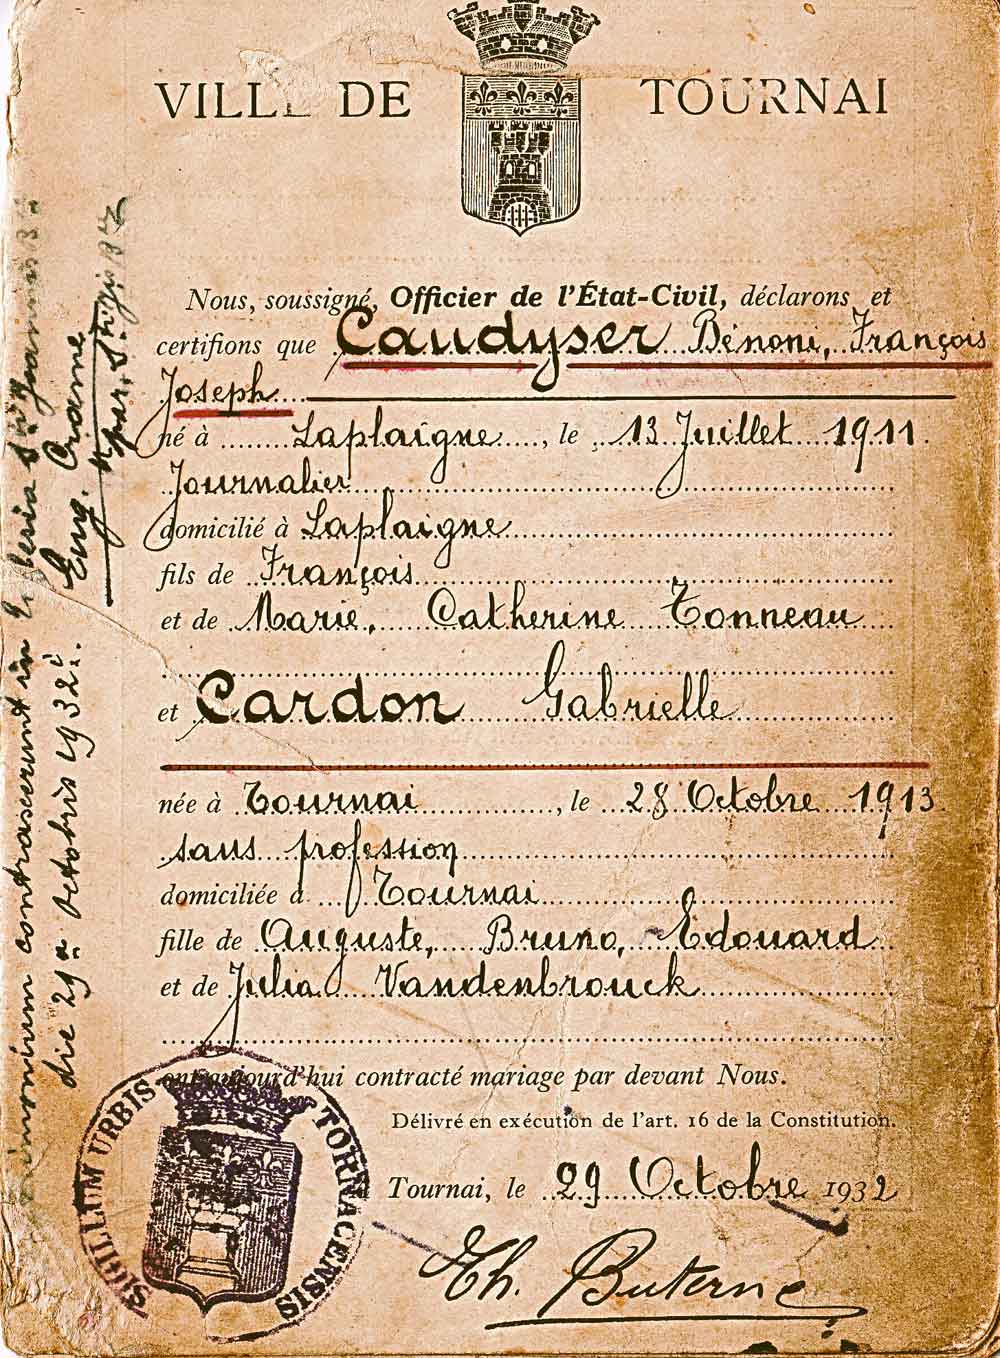 VILLE DE TOURNAI
Nous, soussigné, Officier de l'État-Civil, déclarons et
certifions que Caudyser Bénoni, François
Joseph
né à Laplaigne, le 13 Juillet 1911.
Journalier
domicilié à Laplaigne
fils de François
et de Marie, Catherine Tonneau
et Cardon Gabrielle
née à Tournai, le 28 Octobre 1913
sans profession
domiciliée à Tournai
fille de Auguste, Bruno, Edouard
et de Julia Vandenbrouck
ont aujourd'hui contracté mariage par devant Nous.
Délivré en exécution de l'art. 16 de la Constitution.
Tournai, le 29 Octobre 1932
Th. Buterne
SIGILLUM URBIS TORNACENSIS
contraxerunt in
die 29a octobris 1932.
Eug.
par. Sti